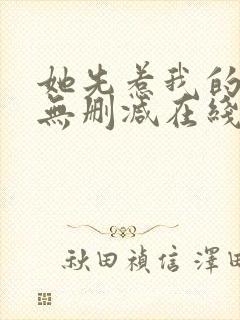 她先惹我的
無刪减在綫
秋田禎信 澤田